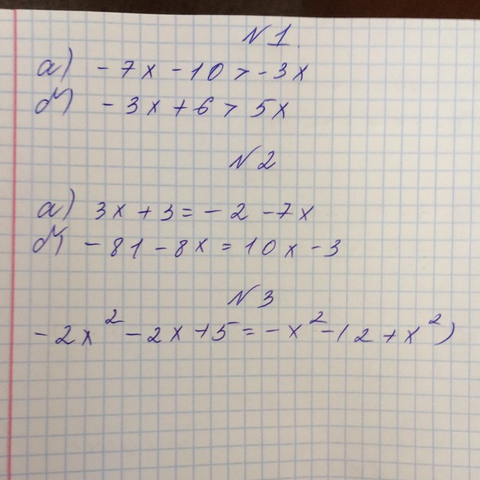 N1.
а) -7x -10 > -3x
б) -3x + 6 > 5x
N2
а) 3x + 3 = -2 -7x
б) -81 -8x = 10x -3
N3
-2x² -2x +5 = -x² -(2 + x²)